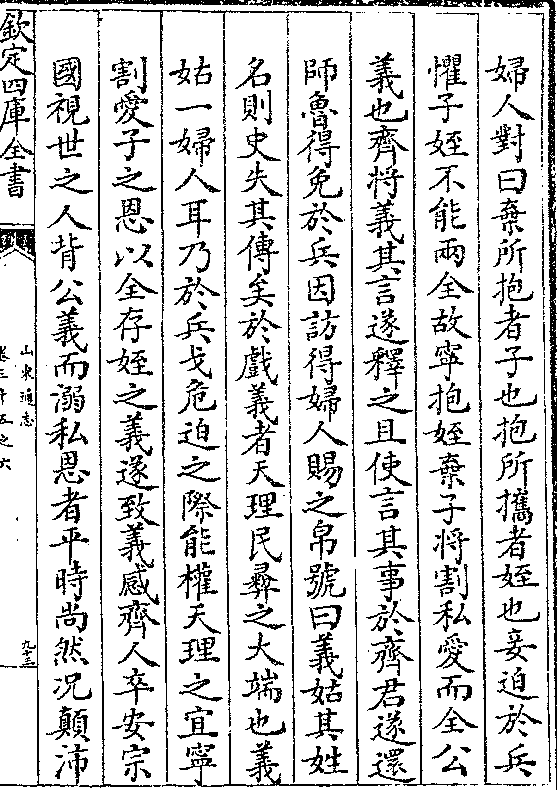 婦人對曰棄所抱者子也抱所攜者姪也妾迫於兵
懼子姪不能兩全故寧抱姪棄子将割私愛而全公
義也齊将義其言遂釋之且使言其事於齊君遂還
師魯得免於兵因訪得婦人賜之帛號曰義姑其姓
名則史失其傳矣於戲義者天理民彝之大端也義
姑一婦人耳乃於兵戈危迫之際能權天理之宜寧
割愛子之恩以全存姪之義遂致義感齊人卒安宗
國視世之人背公義而溺私恩者平時尚然况顛沛
欽定四庫全書
山東通志
卷三十五之六
九十三